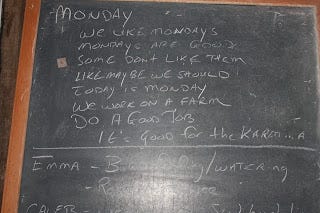 MONDAY
WE LIKE MONDAYS
MONDAYS ARE GOOD
SOME DON'T LIKE THEM
LIKE MAYBE WE SHOULD!
TODAY IS MONDAY
WE WORK ON A FARM
DO A GOOD JOB
IT'S GOOD FOR THE KARM...A
EMMA - /WATERING
CALEB